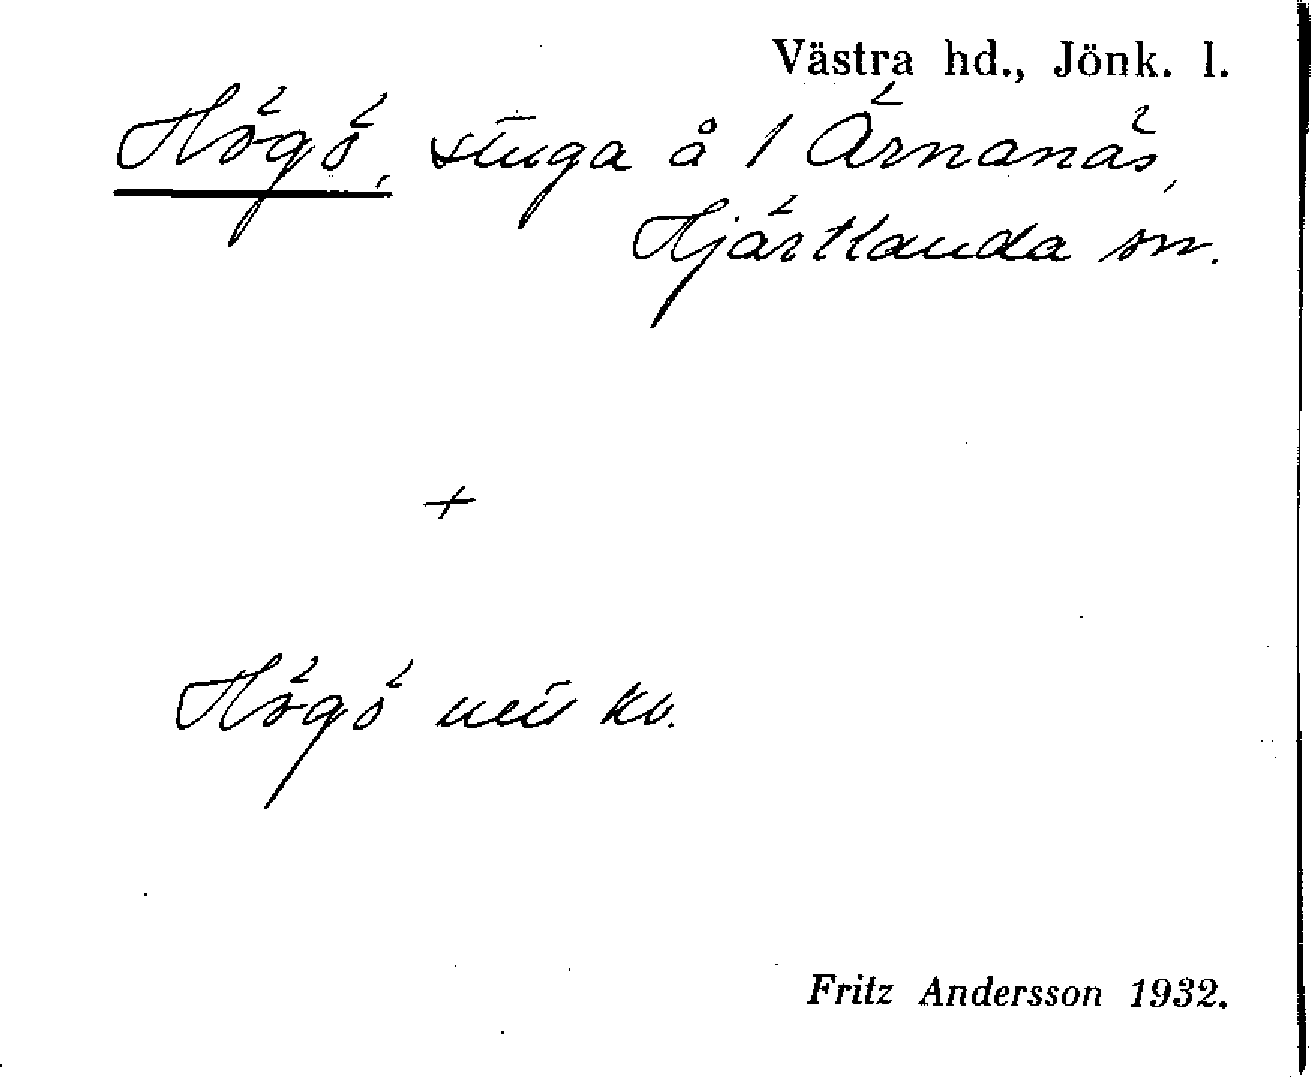 Västra hd., Jönk. l.
Högö, stuga å 1 Ärnanäs,
Hjärtlanda sn.
+
Högö utt kv.
Fritz Andersson 1932.